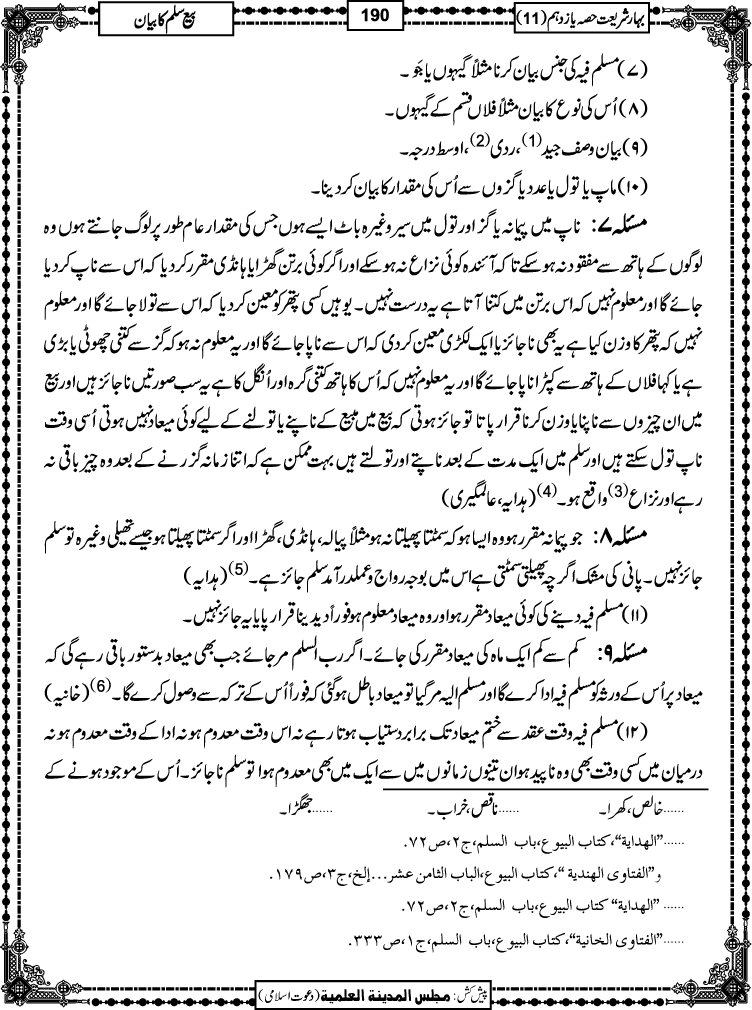 بہارِ شریعت حصہ یازدہم (11)
190
بیع سلم کا بیان
(۷) مسلم فیہ کی جنس بیان کرنا مثلاً گیہوں یا جَو ۔
(۸) اُس کی نوع کا بیان مثلاً فلاں قسم کے گیہوں۔
(۹) بیان وصف جید(1)، ردی(2)، اوسط درجہ۔
(۱۰) ماپ یا تول یا عدد یا گزوں سے اُس کی مقدار کا بیان کر دینا۔
مسئلہ ۷: ناپ میں پیمانہ یا گز اور تول میں سیر وغیرہ باٹ ایسے ہوں جس کی مقدار عام طور پر لوگ جانتے ہوں وہ
لوگوں کے ہاتھ سے مفقود نہ ہو سکے تاکہ آئندہ کوئی نزاع نہ ہو سکے اور اگر کوئی برتن گھڑا یا ہانڈی مقرر کر دیا کہ اس سے ناپ کر دیا
جائے گا اور معلوم نہیں کہ اس برتن میں کتنا آتا ہے یہ درست نہیں۔ یوہیں کسی پتھر کو معین کر دیا کہ اس سے تولا جائے گا اور معلوم
نہیں کہ پتھر کا وزن کیا ہے یہ بھی ناجائز یا ایک لکڑی معین کر دی کہ اس سے ناپا جائے گا اور یہ معلوم نہ ہو کہ گز سے کتنی چھوٹی یا بڑی
ہے یا کہا فلاں کے ہاتھ سے کپڑا ناپا جائے گا اور یہ معلوم نہیں کہ اُس کا ہاتھ کتنی گرہ اور اُنگل کا ہے یہ سب صورتیں ناجائز ہیں اور بیع
میں ان چیزوں سے ناپنا یا وزن کرنا قرار پاتا تو جائز ہوتی کہ بیع میں مبیع کے ناپنے یا تولنے کے لیے کوئی میعاد نہیں ہوتی اُسی وقت
ناپ تول سکتے ہیں اور سلم میں ایک مدت کے بعد ناپتے اور تولتے ہیں بہت ممکن ہے کہ اتنا زمانہ گزرنے کے بعد وہ چیز باقی نہ
رہے اور نزاع(3) واقع ہو۔(4) (ہدایہ، عالمگیری)
مسئلہ ۸: جو پیمانہ مقرر ہو وہ ایسا ہو کہ سمٹتا پھیلتا نہ ہو مثلاً پیالہ، ہانڈی، گھڑا اور اگر سمٹتا پھیلتا ہو جیسے تھیلی وغیرہ تو سلم
جائز نہیں۔ پانی کی مشک اگرچہ پھیلتی سمٹتی ہے اس میں بوجہ رواج و عملدرآمد سلم جائز ہے۔(5) (ہدایہ)
(۱۱) مسلم فیہ دینے کی کوئی میعاد مقرر ہو اور وہ میعاد معلوم ہو فوراً دیدینا قرار پایا یہ جائز نہیں۔
مسئلہ ۹: کم سے کم ایک ماہ کی میعاد مقرر کی جائے۔ اگر رب السلم مر جائے جب بھی میعاد بدستور باقی رہے گی کہ
میعاد پر اُس کے ورثہ کو مسلم فیہ ادا کرے گا اور مسلم الیہ مر گیا تو میعاد باطل ہو گئی کہ فوراً اُس کے ترکہ سے وصول کرے گا۔(6) (خانیہ)
(۱۲) مسلم فیہ وقت عقد سے ختم میعاد تک برابر دستیاب ہوتا رہے نہ اس وقت معدوم ہو نہ ادا کے وقت معدوم ہو نہ
درمیان میں کسی وقت بھی وہ ناپید ہو ان تینوں زمانوں میں سے ایک میں بھی معدوم ہوا تو سلم ناجائز۔ اُس کے موجود ہونے کے
......خالص، کھرا۔ ......ناقص، خراب۔ ......جھگڑا۔
......"الهداية"، كتاب البيوع، باب السلم، ج۲، ص۷۲.
و"الفتاوى الهندية"، كتاب البيوع، الباب الثامن عشر...إلخ، ج۳، ص۱۷۹.
......"الهداية" كتاب البيوع، باب السلم، ج۲، ص۷۲.
......"الفتاوى الخانية"، كتاب البيوع، باب السلم، ج۱، ص۳۳۳.
پیش کش: مجلس المدینۃ العلمیۃ (دعوت اسلامی)